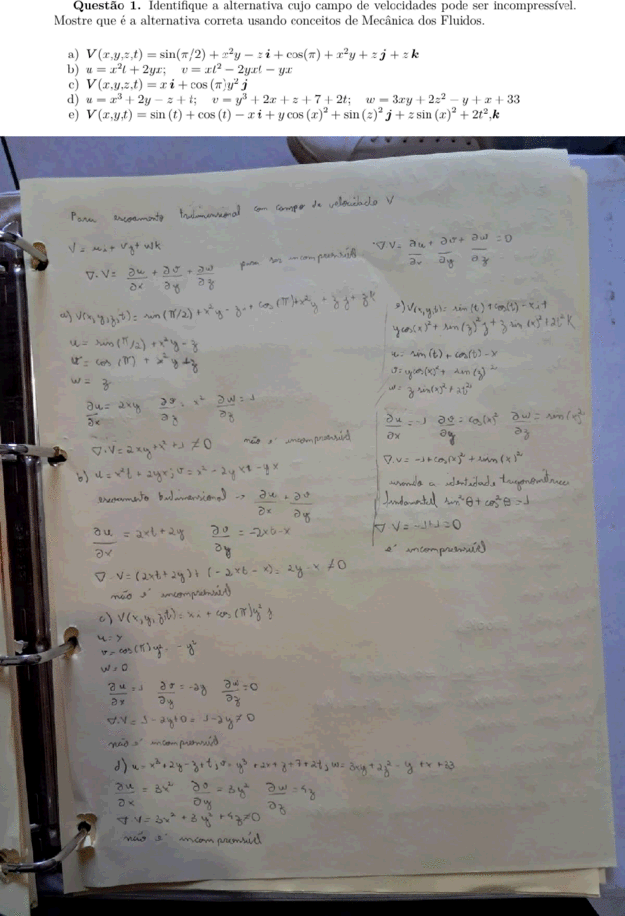 Questão 1. Identifique a alternativa cujo campo de velocidades pode ser incompressível.
Mostre que é a alternativa correta usando conceitos de Mecânica dos Fluidos.
a) V(x,y,z,t) = sin(π/2) + x²y − z i + cos(π) + x²y + z j + z k
b) u = x²t + 2yx; v = xt² − 2yxt − yx
c) V(x,y,z,t) = x i + cos (π)y² j
d) u = x³ + 2y − z + t; v = y³ + 2x + z + 7 + 2t; w = 3xy + 2z² − y + x + 33
e) V(x,y,t) = sin (t) + cos (t) − x i + y cos (x)² + sin (z)² j + z sin (x)² + 2t², k
Para escoamento tridimensional com campo de velocidade V
V = ui + Vj + wk
∇.V = ∂u/∂x + ∂v/∂y + ∂w/∂z para ser incompressível ∇V = ∂u/∂x + ∂v/∂y + ∂w/∂z = 0
a) V(x,y,z,t) = sin(π/2) + x²y − z i + cos(π) + x²y + z j + z k
u = sin(π/2) + x²y − z
v = cos(π) + x²y + z
w = z
∂u/∂x = 2xy ∂v/∂z = x² ∂w/∂z = 1
∇.V = 2xy + x² + 1 ≠ 0 não é incompressível
b) u = x²t + 2yx; v = x² − 2yxt − yx
escoamento bidimensional → ∂u/∂x + ∂v/∂y
∂u/∂x = 2xt + 2y ∂v/∂y = −2xt − x
∇.V = (2xt + 2y) + (−2xt − x) = 2y − x ≠ 0
não é incompressível
c) V(x,y,z,t) = x i + cos(π)y² j
u = x
v = cos(π)y² = −y²
w = 0
∂u/∂x = 1 ∂v/∂y = −2y ∂w/∂z = 0
∇.V = 1 − 2y + 0 = 1 − 2y ≠ 0
não é incompressível
d) u = x³ + 2y − z + t; v = y³ + 2x + z + 7 + 2t; w = 3xy + 2z² − y + x + 33
∂u/∂x = 3x² ∂v/∂y = 3y² ∂w/∂z = 4z
∇V = 3x² + 3y² + 4z ≠ 0
não é incompressível
e) V(x,y,t) = sin(t) + cos(t) − x i +
y cos(x)² + sin(z)² j + z sin(x)² + 2t² k
u = sin(t) + cos(t) − x
v = y cos(x)² + sin(z)²
w = z sin(x)² + 2t²
∂u/∂x = −1 ∂v/∂y = cos(x)² ∂w/∂z = sin(x)²
∇.v = −1 + cos(x)² + sin(x)²
usando a identidade trigonométrica
fundamental sin²θ + cos²θ = 1
∇V = −1 + 1 = 0
é incompressível